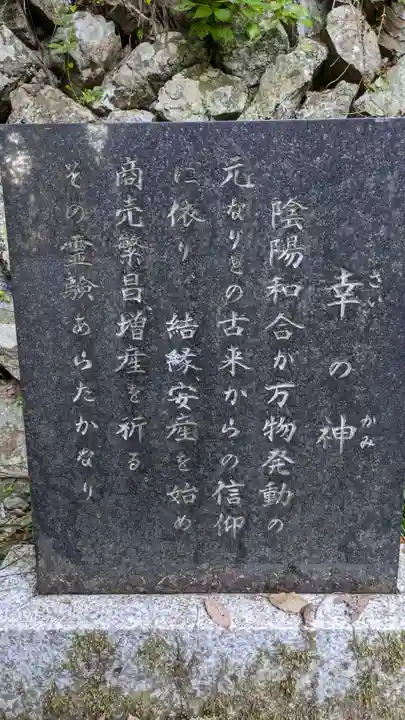 幸の神
さい
かみ
陰陽和合が万物発動の
元なりとの古来からの信仰
に依り 結縁、安産を始め
商売繁昌、増産を祈る。
その霊験あらたかなり